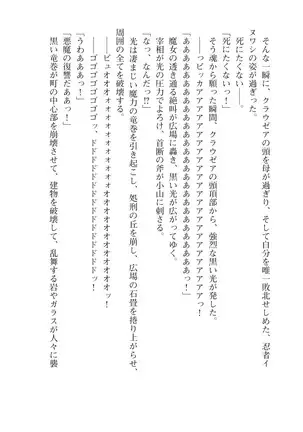 そんな一瞬に、クラウゼアの頭を母が過ぎり、そして自分を唯一敗北せしめた、忍者イ
ヌワシの姿が過ぎった。
死にたくない――。
「死にたくないっ！」
そう魂から願った瞬間、クラウゼアの頭頂部から、強烈な黒い光が発した。
――っピッカアアアアアアアアアアアアアアアアアアアアアっ！
「あああああああああああああああああああああああっ！」
魔女の透き通る絶叫が広場に轟き、黒い光が広がってゆく。
宰相が光の圧力でよろけ、首断の斧が小山に刺さる。
「なっ、なんだっ！？」
光は凄まじい魔力の竜巻を引き起こし、処刑の丘を崩し、広場の石畳を捲り上がらせ、
周囲の全てを破壊する。
――ビュオオオオオオオオオオオオオオオオオオオオっ！
――ゴゴゴゴゴゴゴゴっ、ドドドドドドドドっ！
「うわあああっ！」
「悪魔の復讐だああっ！」
黒い竜巻が町の中心部を崩壊させて、建物を破壊して、乱舞する岩やガラスが人々に襲